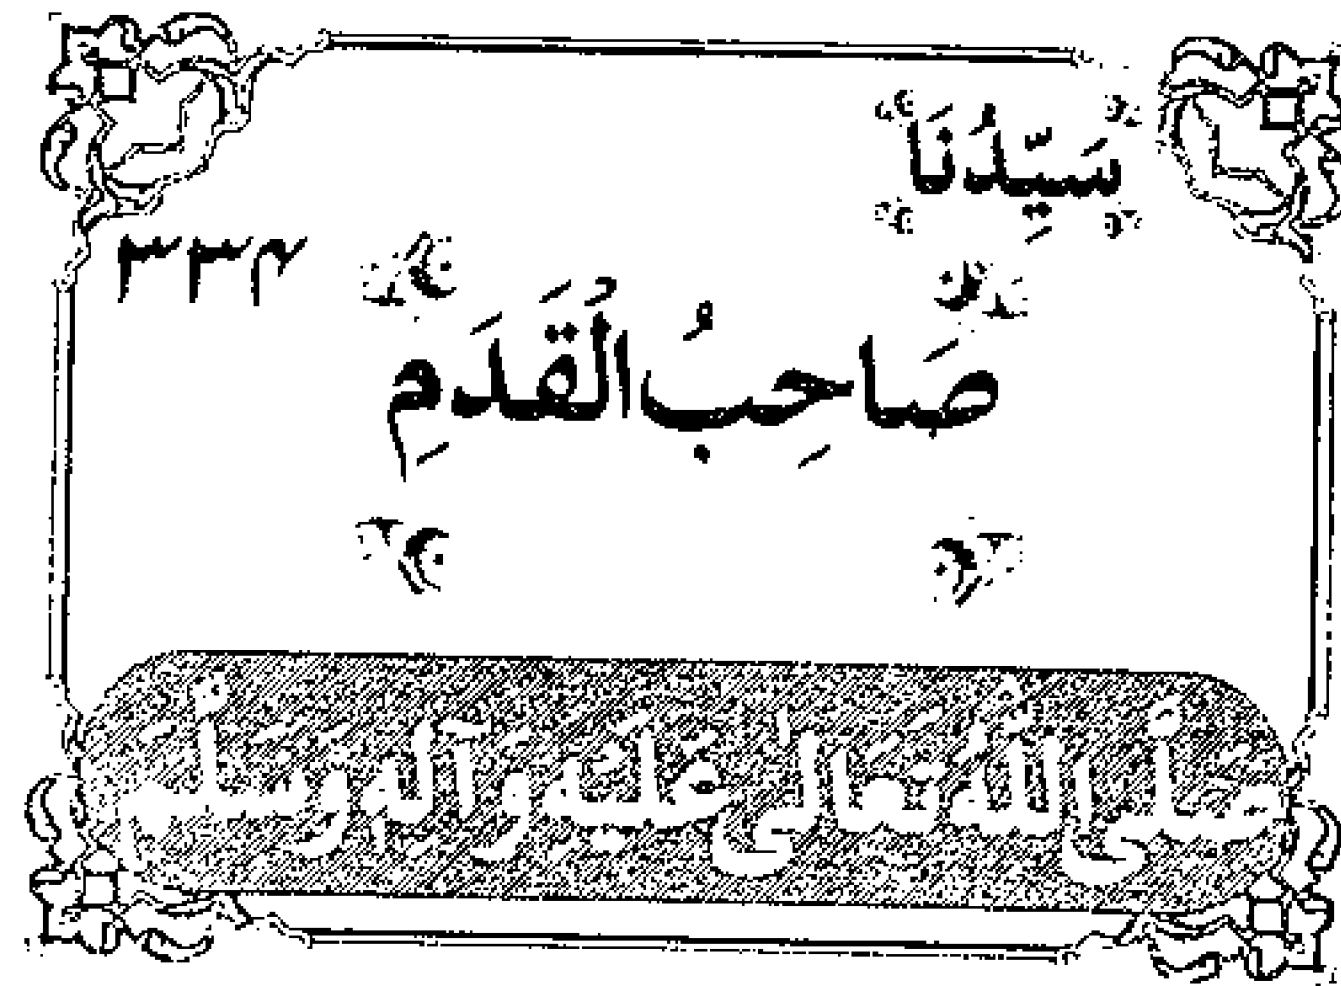 سَيِّدُنَا
۳۳۴
صَاحِبُ الْقَدَمِ
صَلَّى اللّٰهُ تَعَالٰى عَلَيْهِ وَآلِهِ وَسَلَّمَ